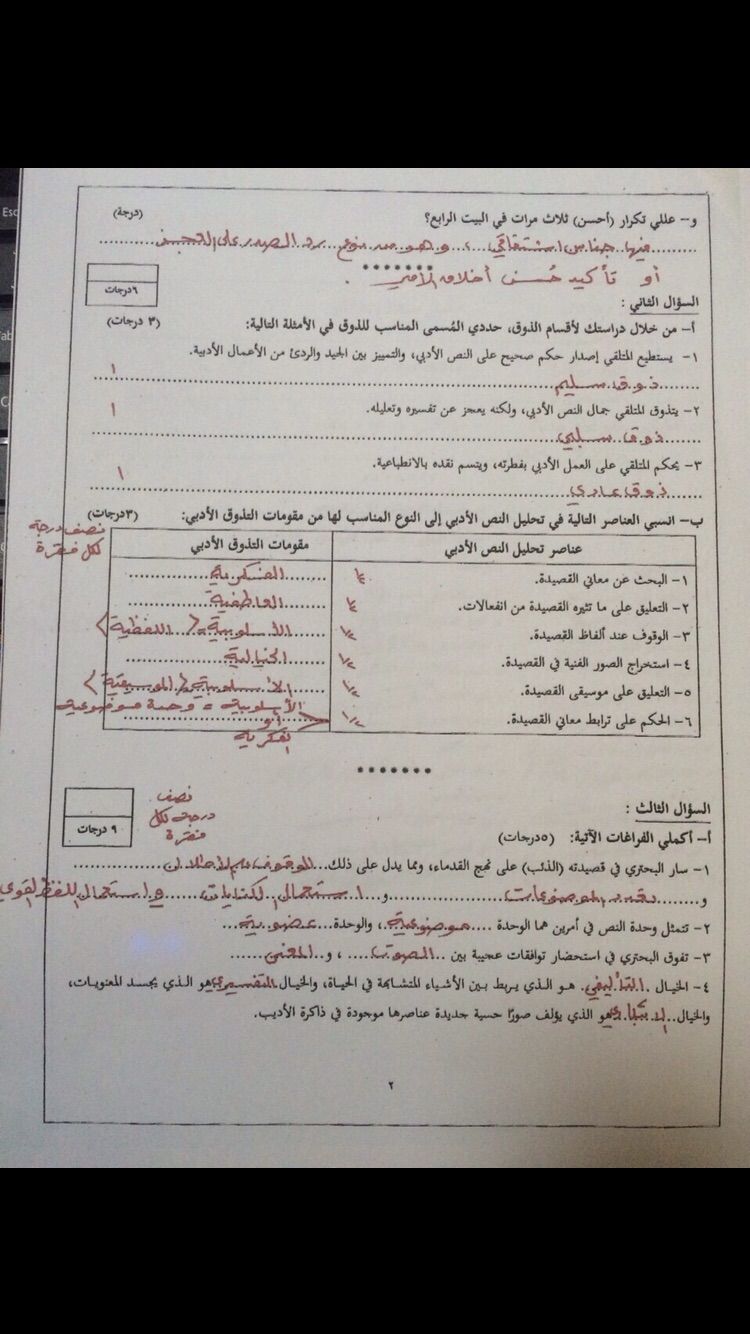 و- عللي تكرار (أحسن) ثلاث مرات في البيت الرابع؟ (درجة)
فيها جناس اشتقاقي، وهو من نوع رد الصدر على العجز
أو تأكيد حُسن أخلاق
٦ درجات
السؤال الثاني :
أ- من خلال دراستك لأقسام الذوق، حددي المُسمى المناسب للذوق في الأمثلة التالية: (٣ درجات)
١- يستطيع المتلقي إصدار حكم صحيح على النص الأدبي، والتمييز بين الجيد والردئ من الأعمال الأدبية.
ذوق سليم ١
٢- يتذوق المتلقي جمال النص الأدبي، ولكنه يعجز عن تفسيره وتعليله. ١
ذوق سلبي
٣- يحكم المتلقي على العمل الأدبي بفطرته، ويتسم نقده بالانطباعية. ١
ذوق عادي
ب- انسبي العناصر التالية في تحليل النص الأدبي إلى النوع المناسب لها من مقومات التذوق الأدبي: (٣درجات)
نصف درجة
لكل فقرة
عناصر تحليل النص الأدبي مقومات التذوق الأدبي
١- البحث عن معاني القصيدة. ١/٢ الفكرية
٢- التعليق على ما تثيره القصيدة من انفعالات. ١/٢ العاطفية
٣- الوقوف عند ألفاظ القصيدة. ١/٢ الأسلوبية = < اللفظية >
٤- استخراج الصور الفنية في القصيدة. ١/٢ الخيالية
٥- التعليق على موسيقى القصيدة. ١/٢ الأسلوبية < الموسيقية >
٦- الحكم على ترابط معاني القصيدة. ١/٢ الأسلوبية = وحدة موضوعية
أو
الفكرية
*******
السؤال الثالث :
٩ درجات
نصف
درجة لكل
فقرة
أ- أكملي الفراغات الآتية: (٥درجات)
١- سار البحتري في قصيدته (الذئب) على نهج القدماء، ومما يدل على ذلك الوقوف على الأطلال
و تعدد الموضوعات و استعمال الكنايات و استعمال اللفظ القوي
٢- تتمثل وحدة النص في أمرين هما الوحدة موضوعية، والوحدة عضوية
٣- تفوق البحتري في استحضار توافقات عجيبة بين الصوت، و المعنى
٤- الخيال التأليفي هو الذي يربط بين الأشياء المتشابهة في الحياة، والخيال التفسيري هو الذي يجسد المعنويات،
والخيال الابتكاري هو الذي يؤلف صورًا حسية جديدة عناصرها موجودة في ذاكرة الأديب.
٢